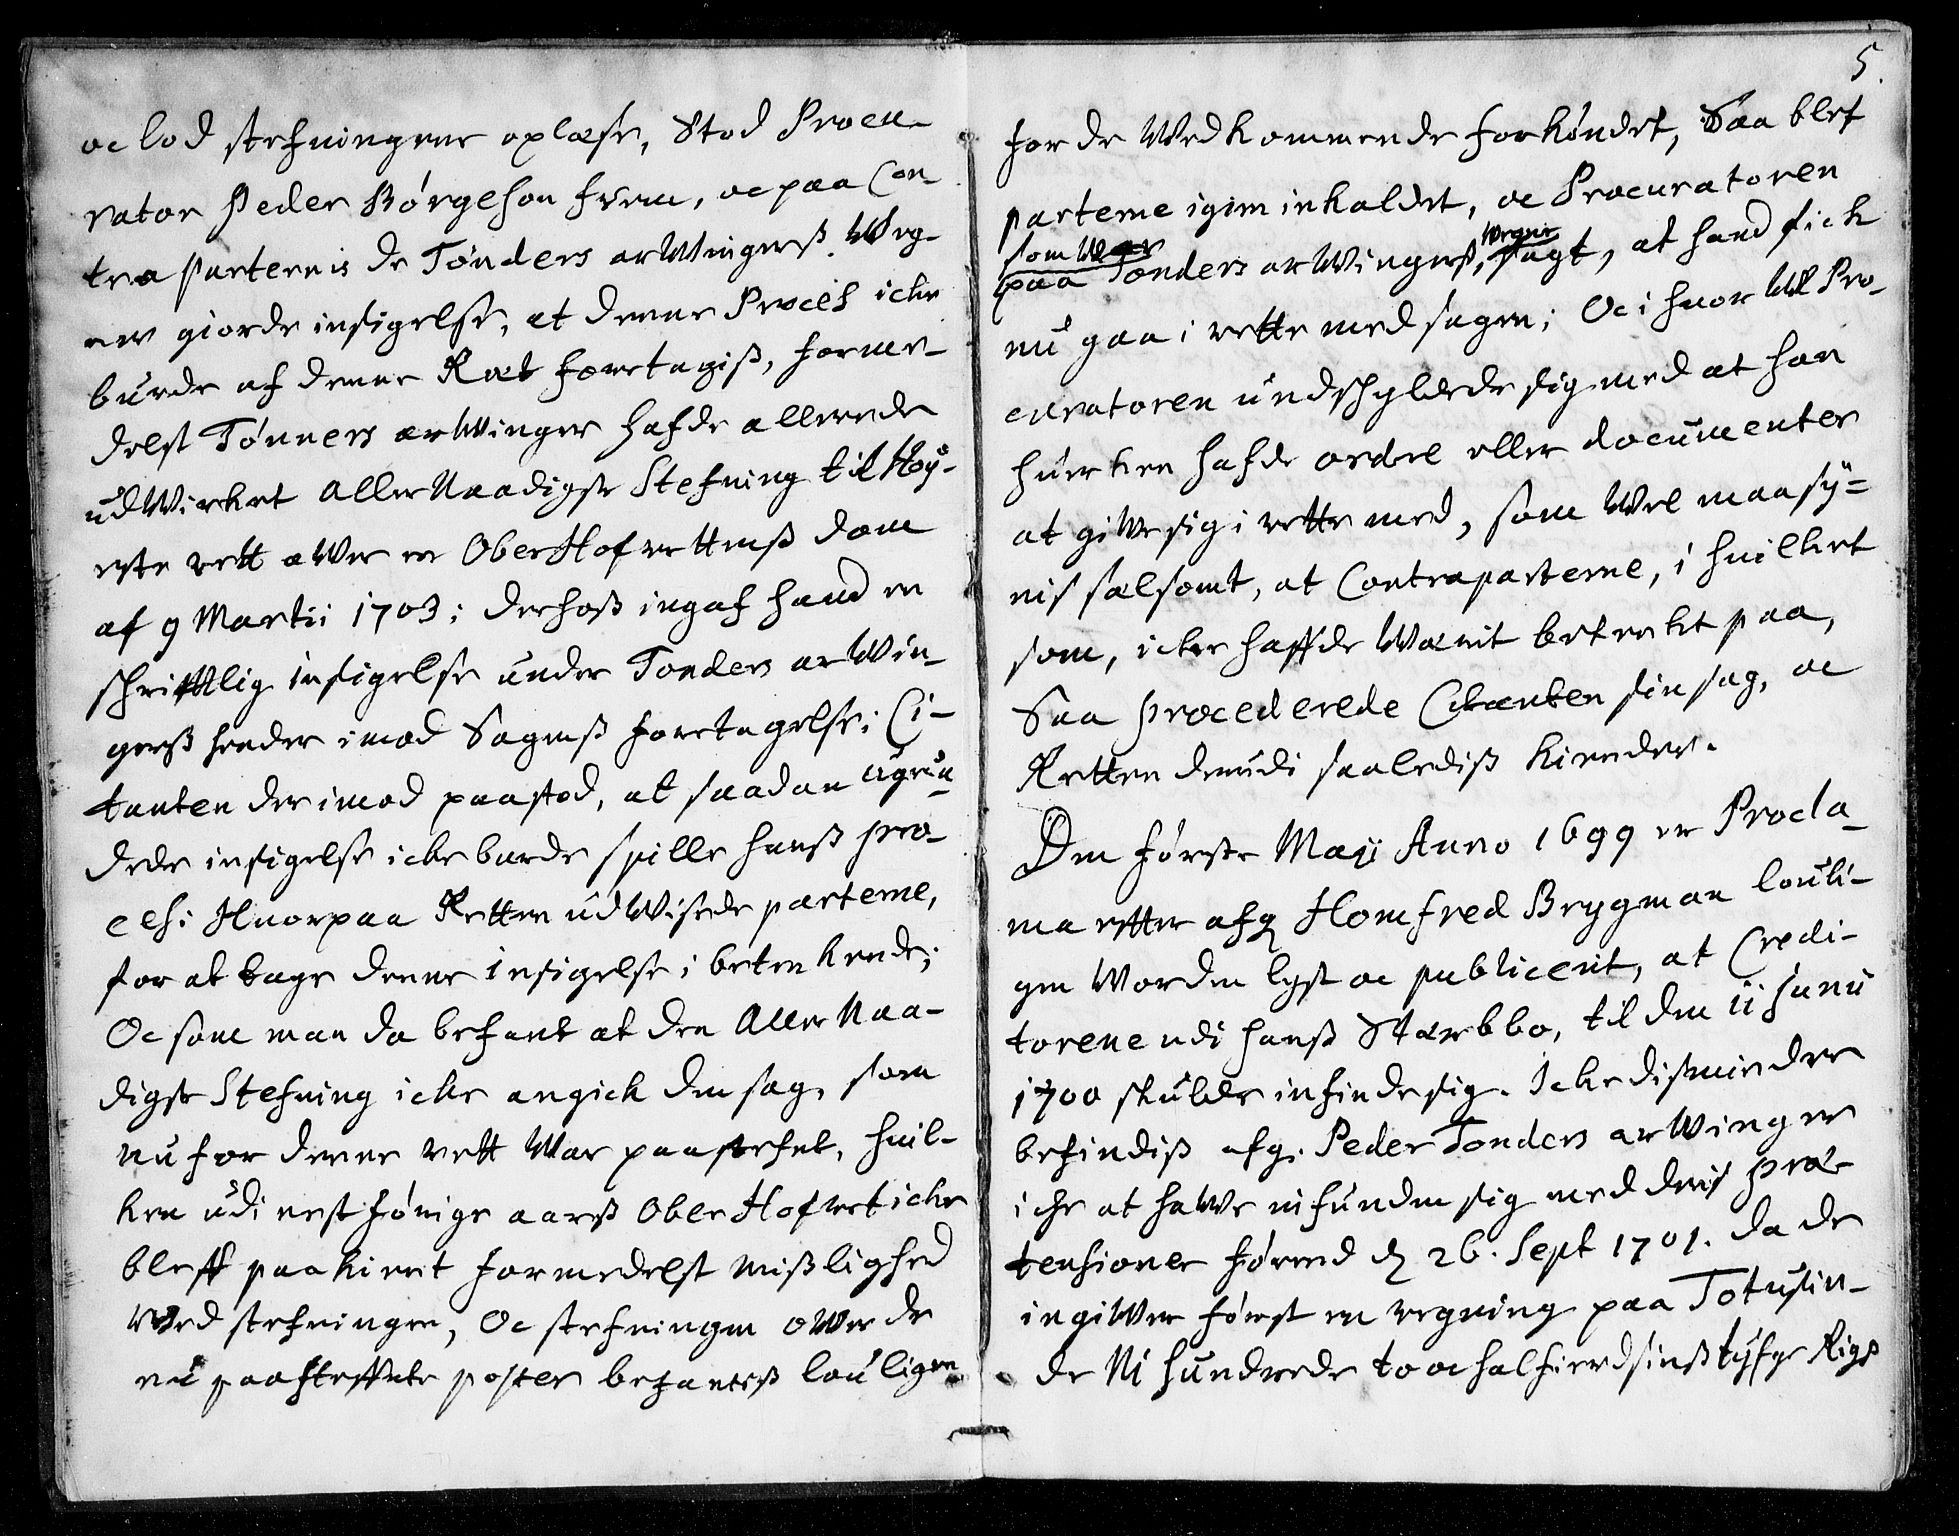 oc lod stefningene oplæse, Stod Procu-
rator Peder Børgeson frem, oc paa Con-
tra Parternis De Tønders arWingerß Weg-
ner giorde insigelse, at denne Proces icke
burde af denne Ræt foretagiß, forme-
delst Tønners arWinger hafde allerede
udWirket AllerNaadigste Stefning til Høy-
este rett ower en OberHofrettenß dom
af 9 Martii 1703; derhoß ingaf hand en
schriftlig insigelse under Tonders arWin-
gerß hender imod Sagenß foretagelse; Ci-
tanten derimod paastod, at saadan ugrun-
dede insigelse icke burde spille hanß pro-
ces; Huorpaa Retten udWisede parterne,
for at tage denne insigelse i betenkende;
Oc som man da befant at den AllerNaa-
digste Stefning icke angick den sag, som
nu for denne rett War paastefnt, huil-
ken udi nest forige aarß OberHofrett icke
bleff paakient formedelst mißlighed
wed stefningen, Oc stefningen ower de
nu paasteffnte poster befantiß louligen
5.
for de Wedkommende forkøndet, Saa blef
parterne igien inkaldet, oc Procuratoren
som War wegne
paa Tonders arWingerß, sagt, at hand fick
nu gaa i rette med sagen; Oc i huor Wel Pro-
curatoren undschyldede sig med at han
huerken hafde ordre eller documenter
at giWe sig i rette med, som Wel maa sy-
nis selsomt, at Contraparterne, i huilket
som, icke haffde Wærit betenkt paa,
Saa procederede Citanten sin sag, oc
Retten derudi saalediß kiender.
Den første Maji Anno 1699 er Procla-
ma efter afg Homfred Brygman louli-
gen Worden lyst oc publicerit, at Credi-
torene udi hanß Stærbbo, til den 11 Junii
1700 skulde infinde sig. Icke dißmindre
befindiß afg. Peder Tonders arWinger
icke at haWe infunden sig med deris præ-
tensioner førend d 26. Sept 1701. da de
ingiWer først en regning paa Totusin-
de Ni hundrede to oc halfierdsinß tyfge Rigs